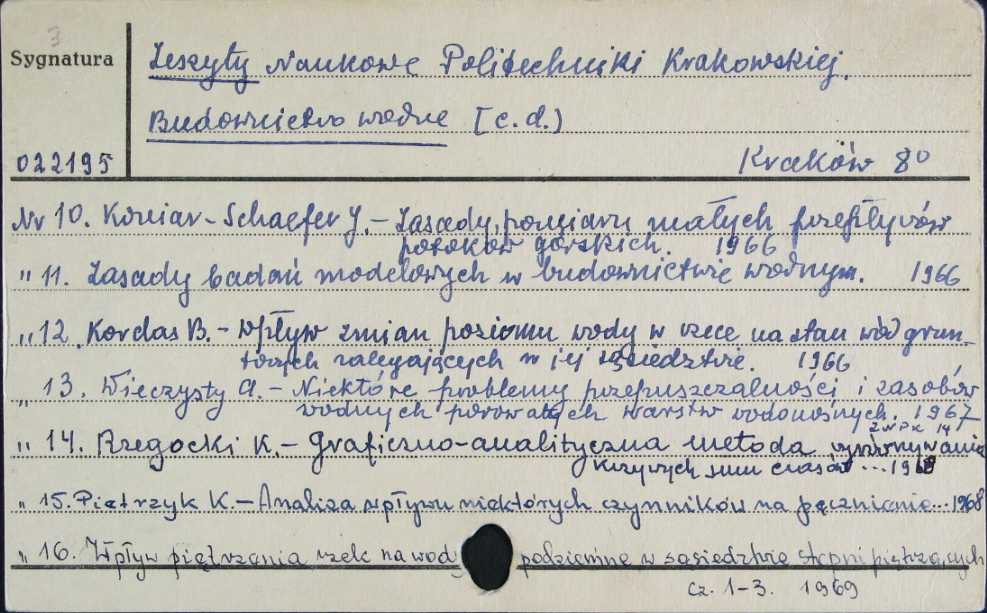 3
Sygnatura
Zeszyty Naukowe Politechniki Krakowskiej.
Budownictwo wodne [c.d.)
022195
Kraków 8°
Nr 10. Koniar-Schaefer J. - Zasady pomiaru małych przepływów
potoków górskich. 1966
" 11. Zasady badań modelowych w budownictwie wodnym. 1966
" 12. Kordas B. - Wpływ zmian poziomu wody w rzece na stan wód grun-
towych zalegających w jej sąsiedztwie. 1966
" 13. Wieczysty A. - Niektóre problemy przepuszczalności i zasobów
wodnych porowatych warstw wodonośnych. 1967
ZNPK 14
" 14. Rzegocki K. - Graficzno-analityczna metoda wyrównywania
krzywych sum czasów ... 1968
" 15. Pietrzyk K. - Analiza wpływu niektórych czynników na pęcznienie... 1968
" 16. Wpływ piętrzenia rzek na wody podziemne w sąsiedztwie stopni piętrzących
cz. 1-3. 1969